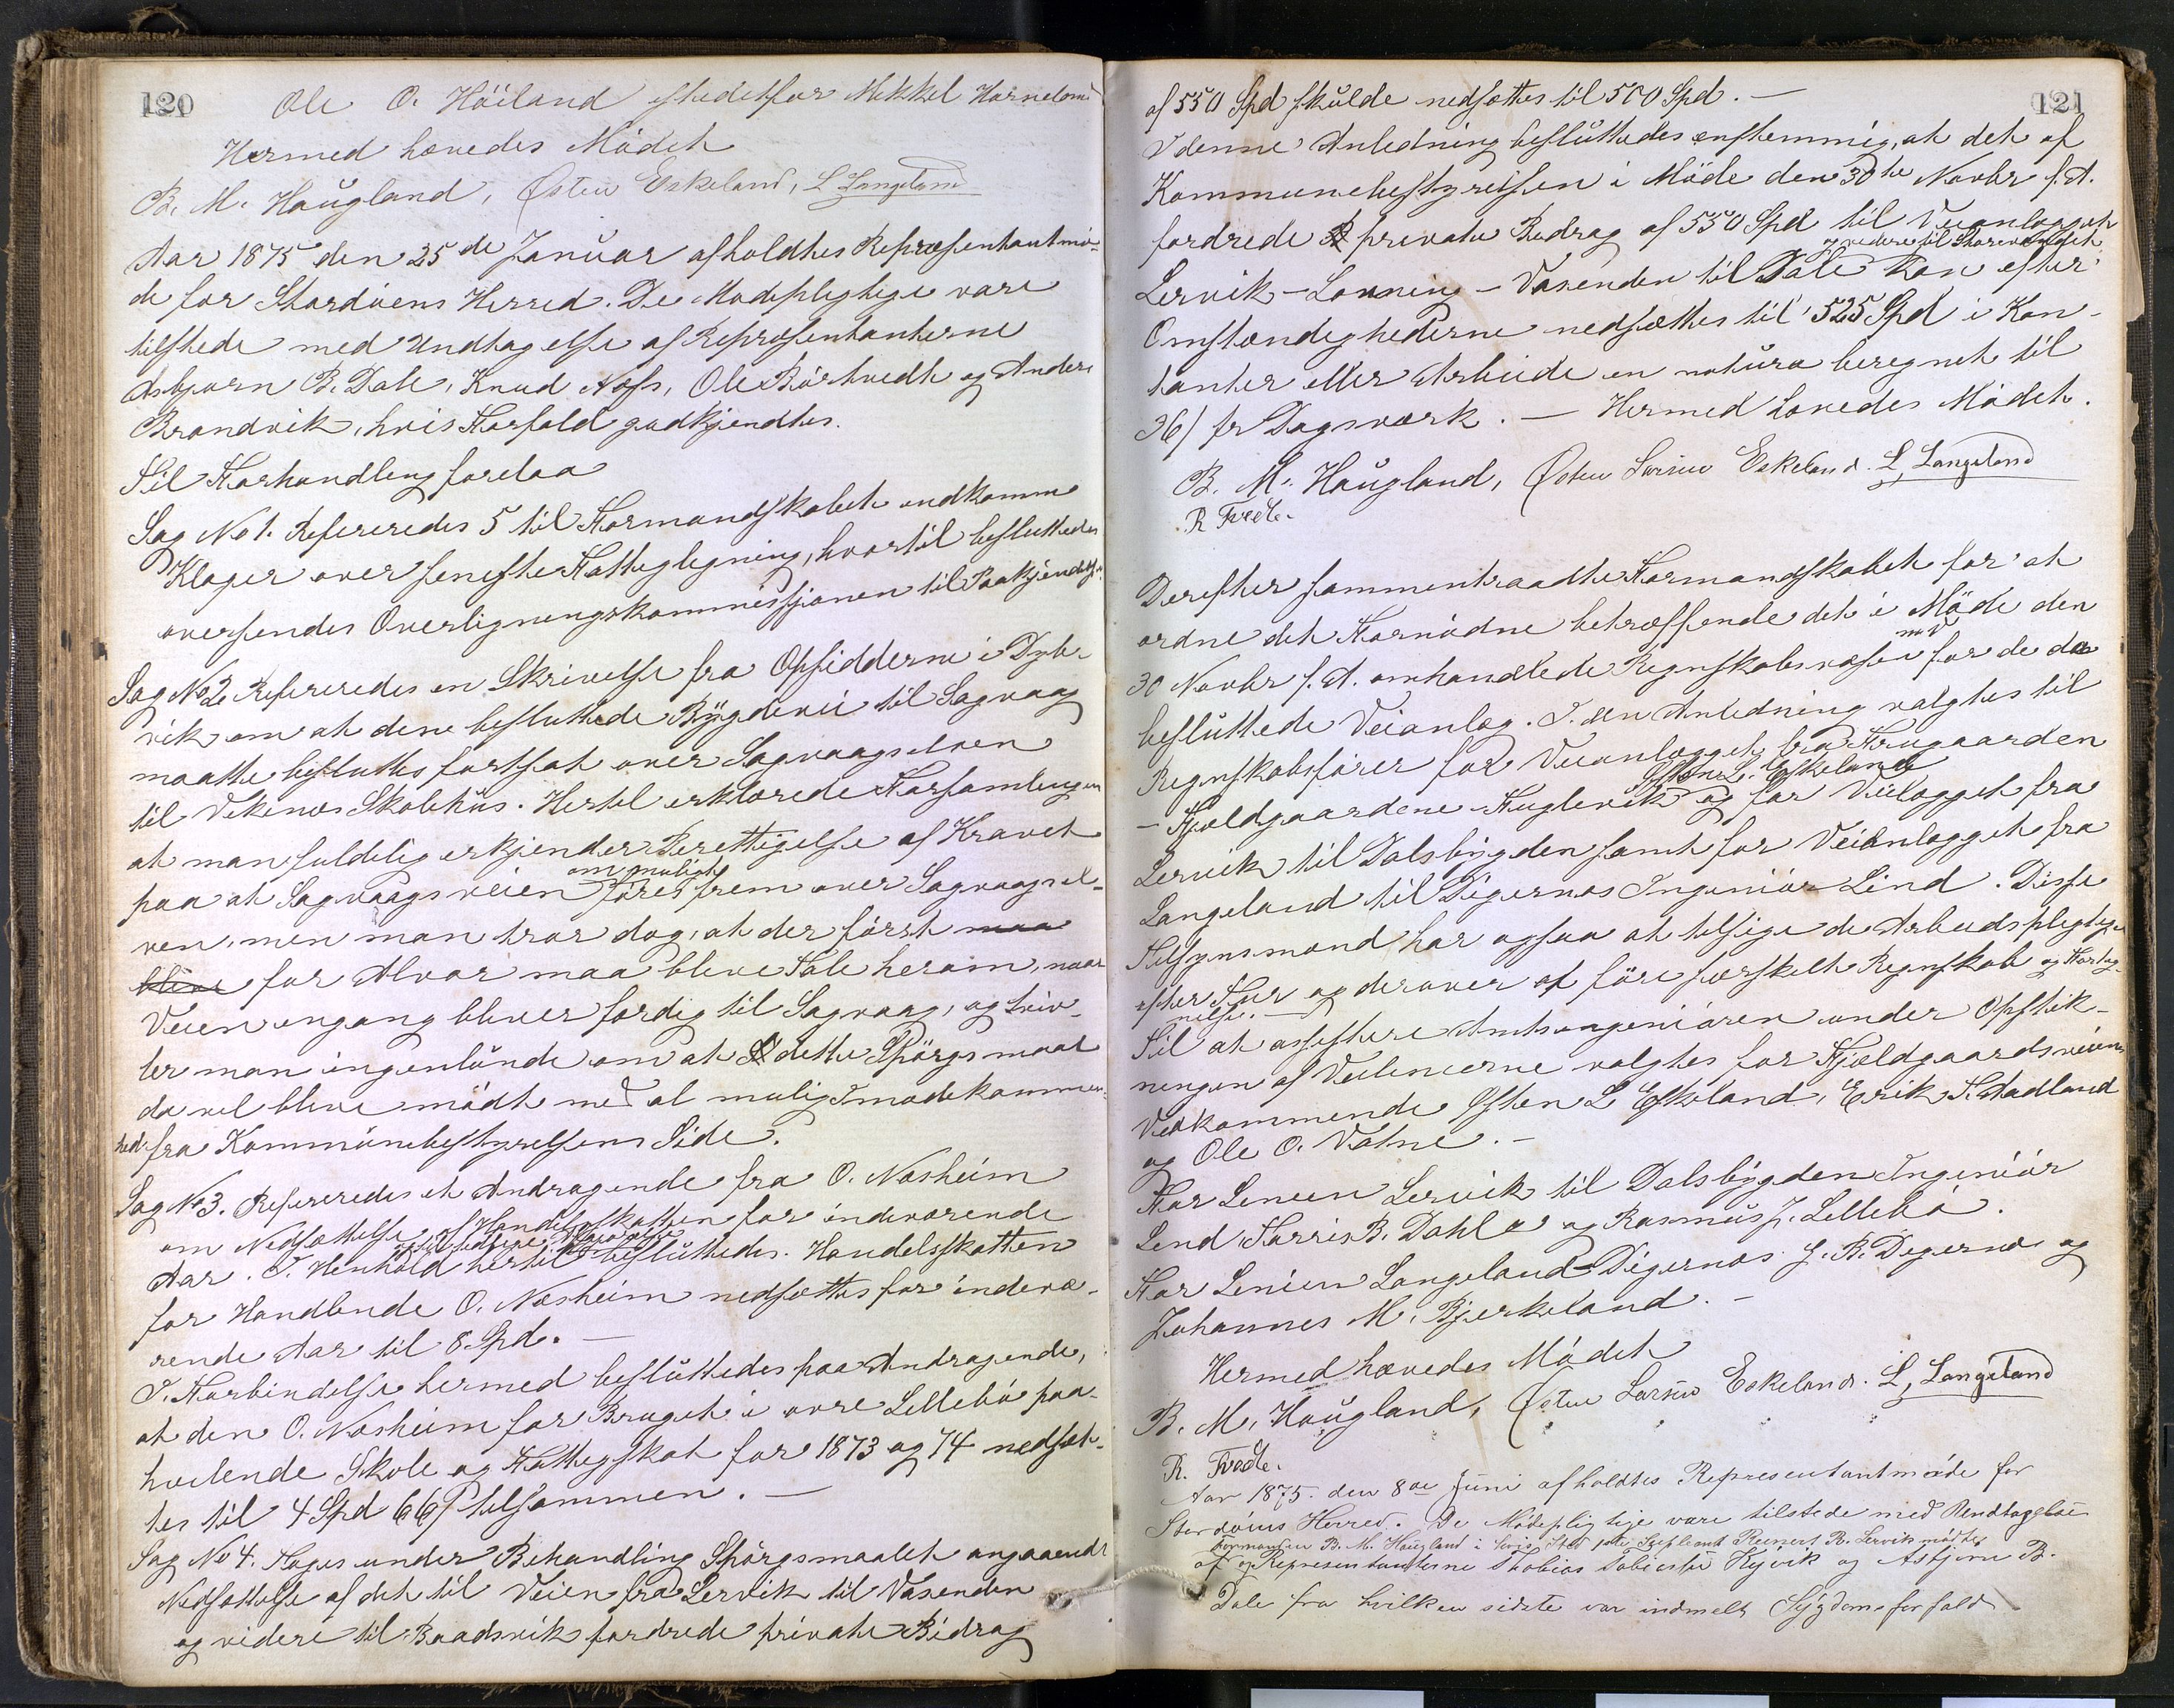 120
Ole O. Høiland istedetfor Mikkel Horneland
Hermed hævedes Mödet
B. M. Haugland, Østen Eskeland, L Langeland
Aar 1875 den 25de Januar afholdtes Repræsentantmö-
de for Stordöens Herred. De Modepligtige vare
tilstede med Undtagelse af Repræsentanterne
Asbjørn B. Dale, Knud Næss, Ole Børtvedt og Anders
Brandvik, hvis Forfald godkjendtes.
Til Forhandling forelaa
Sag No 1. Refereredes 5 til Formandskabet indkomne
Klager over seneste Fattigligning, hvortil besluttedes
oversendes Overligningskommissjonen til Paakjendelse.
Sag No 2 Refereredes en Skrivelse fra Opsidderne i Dyb-
vik om at den besluttede Bygdevei til Sagvaag
maatte besluttes fortsat over Sagvaagselven
til Vikenæs Skolehus. Hertil erklærede Forsamlingen
at man fuldelig erkjender Berettigelse af Kravet
om muligt
paa at Sagvaagsveien föres frem over Sagvaagsel-
ven, men man tror dog, at der först maa
blive for Alvor maa blive Tale herom, naar
Veien engang bliver færdig til Sagvaag, og tviv-
ler man ingenlunde om at dette Spörgsmaal
da vil blive mödt med al mulig Imødekommen-
hed fra Kommunebestyrelsens Side.
Sag No 3. Refereredes et Andragende fra O. Næsheim
om Nedsættelse af Handelsskatten for indeværende
Aar. I Henhold hertil besluttedes. Handelsskatten
for Handlende O. Næsheim nedsættes for indevæ-
rende Aar til 8 Spd. —
I Forbindelse hermed besluttedes paa Andragende,
at den O. Næsheim for Bruget i övre Lillebö paa-
hvilende Skole og Fattigskat for 1873 og 74 nedsæt-
tes til 4 Spd 66 ß tilsammen. —
Sag No 4. Toges under Behandling Spörgsmaalet angaaende
Nedsættelse af det til Veien fra Lervik til Vasenden
og videre til Baadsvik fordrede private Bidrag
121
af 550 Spd skulde nedsættes til 500 Spd. —
I denne Anledning besluttedes enstemmig, at det af
Kommunebestyrelsen i Möde den 30te Novbr f. A.
fordrede private Bidrag af 550 Spd til Veianlægget
og videre til
Lervik – Lonning – Vasenden til Dale kan efter
Omstændighederne nedsættes til 525 Spd i Kon-
tanter eller Arbeide en natura beregnet til
36 ß pr Dagsværk. — Hermed hævedes Mödet.
B. M. Haugland, Østen Larsen Eskeland. L, Langeland
R Tvedte.
Derefter sammentraadte Formandskabet for at
ordne det Fornödne betræffende det i Möde den
m V
30 Novbr f. A. omhandlede Regnskabsvæsen for de da
besluttede Veianlæg. I den Anledning valgtes til
Regnskabsförer for Veianlægget fra Frugaarden
Østen L. Eskeland
– Fjeldgaardene – Fuglevik og for Veilægget fra
Lervik til Dalsbygden samt for Veianlægget fra
Langeland til Digernæs Ingeniör Lind. Disse
Tilsynsmænd har ogsaa at tilsige de Arbeidspligtige
efter Tur og derover at före særskilt Regnskab og Forteg-
nelse. —
Til at assistere Amtsingeniören under Opstik-
ningen af Veilinierne valgtes for Fjeldgaardsveiens
Vedkommende Østen L Eskeland, Erik T. Aadland
og Ole O. Vatne. –
For Linien Lervik til Dalsbygden Ingeniör
Lind, Torris B. Dahle og Rasmus J. Lillebö.
For Linien Langeland – Digernæs J. B. Digernæs og
Johannes M. Bjerkeland. –
Hermed hævedes Mödet
B. M. Haugland, Østen Larsen Eskeland. L, Langeland
R. Tvedte.
Aar 1875 den 8de Juni afholdtes Representantmöde for
Stordöens Herred. De Mödepligtige vare tilstede med Undtagelse
Formanden B. M. Haugland i hvis Sted 1ste Suppleant Reinert R. Lervik mödte,
af og Representanterne Thobias Tobiassen Hyvik og Asbjörn B.
Dale fra hvilken sidste var indmeldt Sygdomsforfald